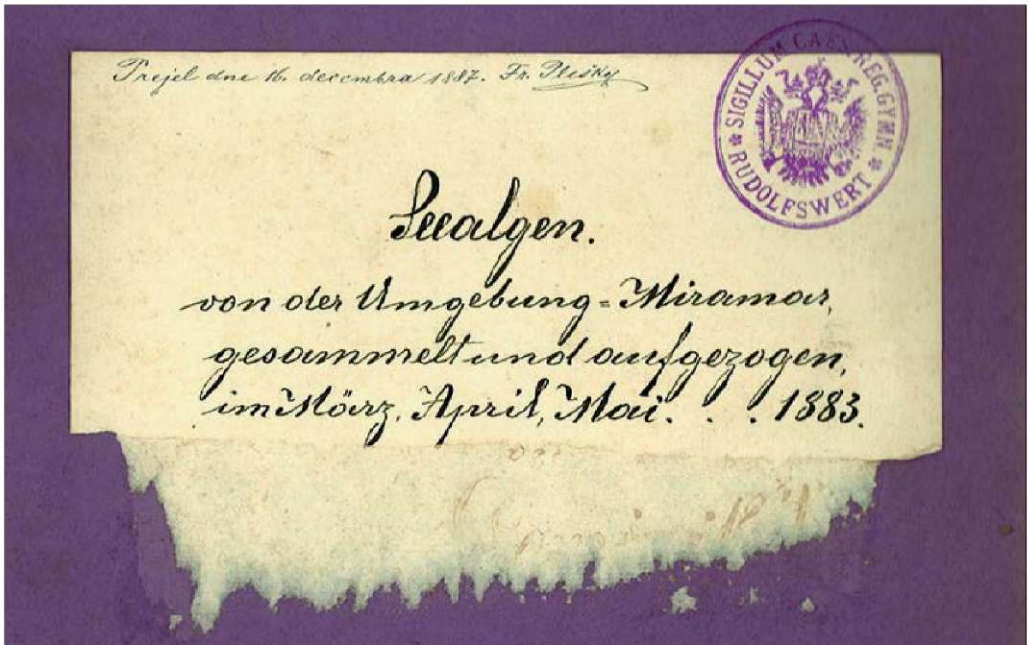 Prejel dne 16. decembra 1887. Fr.
SIGILLUM CAES. REG. GYMN * RUDOLFSWERT *
Seealgen.
von der Umgebung=Miramar,
gesammelt und aufgezogen,
im März, April, Mai. . . 1883.